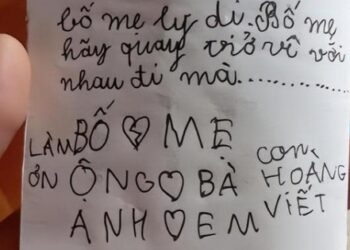 bố mẹ ly dị. Bố mẹ
hãy quay trở về với
nhau đi mà..............
LÀM BỐ 💔 MẸ
ƠN ÔNG ♡ BÀ CON HOÀNG
ANH ♡ EM VIẾT